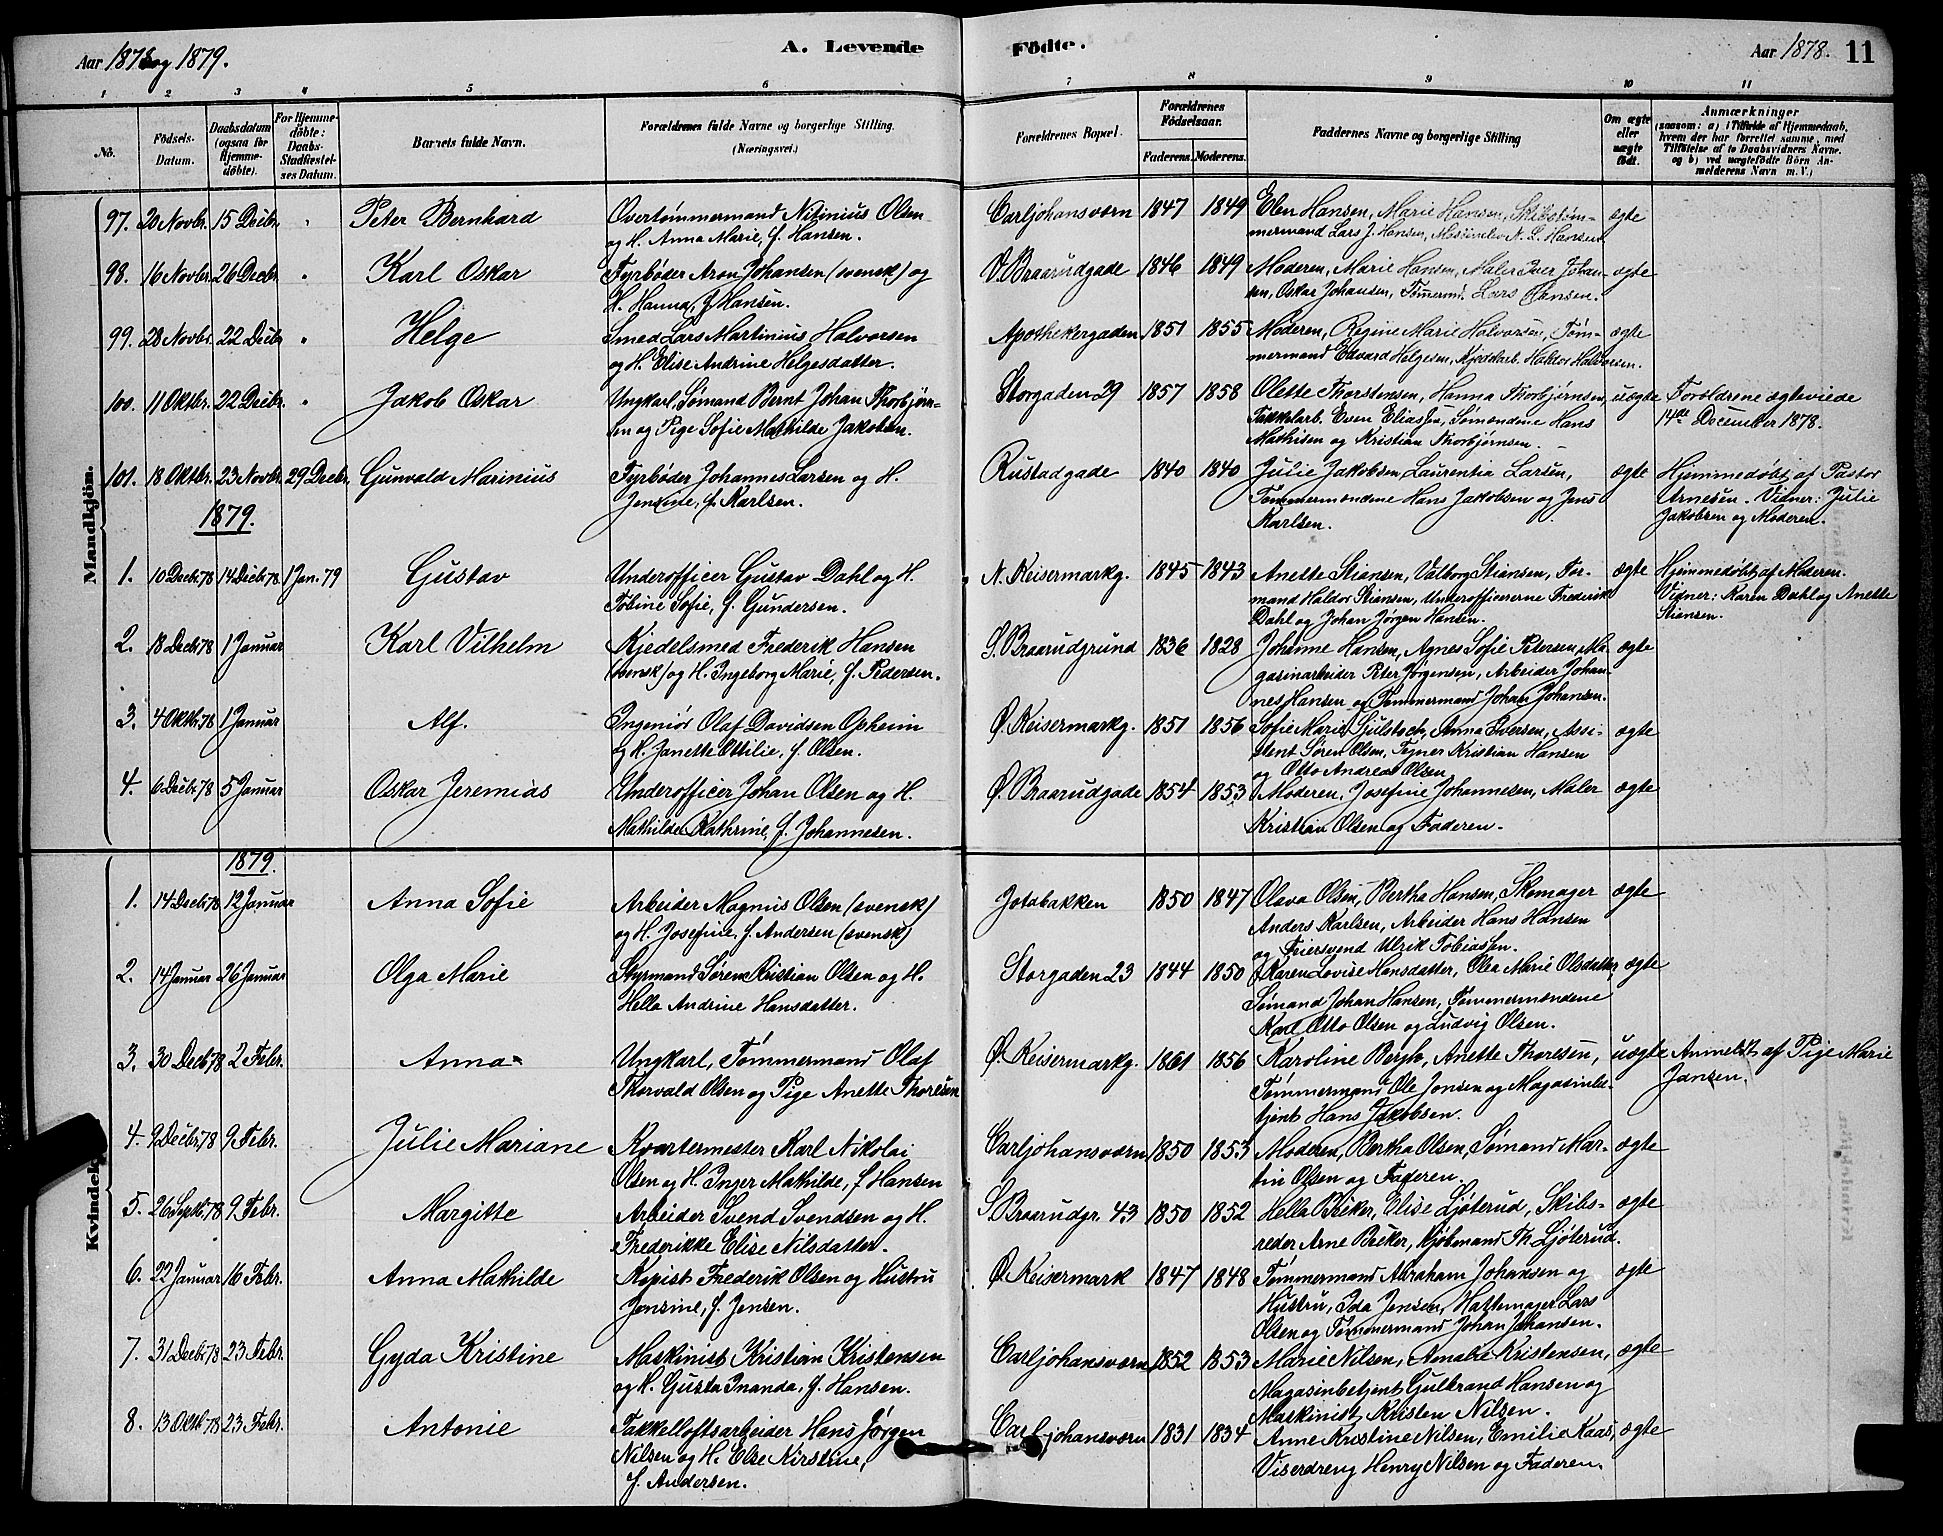 Aar 1878 og 1879.
A. Levende
Födte.
Aar 1878.
11
1 2 3 4 5 6 7 8 9 10 11
No.
Födsels-Datum.
Daabsdatum (ogsaa for Hjemme-döbte).
For Hjemme-döbte: Daabs-Stadfæstel-ses Datum.
Barnets fulde Navn.
Forældrenes fulde Navne og borgerlige Stilling.
(Næringsvei.)
Forældrenes Bopæl.
Forældrenes Födselsaar.
Faderens. Moderens.
Faddernes Navne og borgerlige Stilling
Om ægte eller uægte födt.
Anmærkninger
(saasom: a) i Tilfælde af Hjemmedaab,
hvem der har forrettet samme, med
Tilföielse af to Daabsvidners Navne.
og b) ved uægtefödte Börn An-
melderens Navn m. V.)
Mandkjön.
97. 20 Novbr. 15 Decbr. " Peter Bernhard Overtømmermand Nitinius Olsen Carljohansværn 1847 1849 Elen Hansen, Marie Hansen, Skibstøm- ægte
og H. Anna Marie, f. Hansen. mermand Lars J. Hansen, N. L. Hansen.
98. 16 Novbr. 26 Decbr. " Karl Oskar Fyrbøder Aron Johansen (svensk) og V. Braarudgade 1846 1849 Moderen, Marie Hansen, Maler Iver Johan- ægte
H. Hanna, f. Hansen. sen, Oskar Johansen, Tømmerm. Lars Hansen.
99. 28 Novbr. 22 Decbr. " Helge Smed Lars Martinius Halvorsen Apothekergaden 1851 1855 Moderen, Regine Marie Halvorsen, Tøm- ægte
og H. Elise Andrine Helgesdatter. mermand Edvard Helgesen, Kjedelarb. Haldor Halvorsen.
100. 11 Oktbr. 22 Decbr. " Jakob Oskar Ungkarl, Sømand Bernt Johan Thorbjørn- Storgaden 29 1857 1858 Olette Thorstensen, Hanna Thorbjørnsen, uægte Foreldrene ægteviede
sen og Pige Sofie Mathilde Jakobsen. Takkelarb. Even Eliassen, Sømændene Hans 14de December 1878.
Mathisen og Kristian Thorbjørnsen.
101. 18 Oktbr. 23 Novbr. 29 Decbr. Gunvald Marinius Fyrbøder Johannes Larsen og H. Rustadgade 1840 1840 Julie Jakobsen, Laurentia Larsen, ægte Hjemmedøbt af Pastor
Jensine, f. Karlsen. Tømmermændene Hans Jakobsen og Jens Arnesen. Vidner: Julie
Karlsen. Jakobsen og Moderen.
1879.
1. 10 Decbr 78 14 Decbr 78 1 Jan. 79 Gustav Underofficer Gustav Dahl og H. N. Keisermarkg. 1845 1843 Anette Stiansen, Valborg Stiansen, For- ægte Hjemmedøbt af Moderen.
Tobine Sofie, f. Gundersen. mand Haldor Stiansen, Underofficererne Frederik Vidner: Karen Dahl og Anette
Dahl og Johan Jørgen Hansen. Stiansen.
2. 18 Decbr 78 1 Januar Karl Vilhelm Kjedelsmed Frederik Hansen S. Braarudgrund 1836 1828 Johanne Hansen, Agnes Sofie Petersen, Ma- ægte
(svensk) og H. Ingeborg Marie, f. Pedersen. gasinarbeider Peter Jørgensen, Arbeider Johan-
nes Hansen og Tømmermand Johan Johansen.
3. 4 Oktbr 78 1 Januar Alf. Ingeniör Olaf Davidsen Opheim Ø. Keisermarkg. 1851 1856 Sofie Marie Gjulstoch, Anna Iversen, Assi- ægte
og H. Janette Ottilie, f. Olsen. stent Søren Olsen, Tegner Kristian Hansen
og Otto Andreas Olsen
4. 6 Decbr 78 5 Januar Oskar Jeremias Underofficer Johan Olsen og H. Ø. Braarudgade 1854 1853 Moderen, Josefine Johannesen, Maler ægte
Mathilde Kathrine, f. Johannesen. Kristian Olsen og Faderen.
Kvindek.
1879.
1. 14 Decbr 78 12 Januar Anna Sofie Arbeider Magnus Olsen (svensk) Jotabakken 1850 1847 Olava Olsen, Bertha Hansen, Skomager ægte
og H. Josefine, f. Andersen (svensk) Anders Karlsen, Arbeider Hans Hansen
og Feiersvend Ulrik Tobiassen.
2. 14 Januar 26 Januar Olga Marie Styrmand Søren Kristian Olsen og H. Storgaden 23 1844 1850 Karen Lovise Hansdatter, Olea Marie Olsdatter, ægte
Hella Andrine Hansdatter. Sømand Johan Hansen, Tømmermændene
Karl Otto Olsen og Ludvig Olsen.
3. 30 Decb 78 2 Febr. Anna Ungkarl, Tømmermand Olaf Ø. Keisermarkg. 1861 1856 Karoline Bergh, Anette Thoresen, uægte Anmeldt af Pige Marie
Thorvald Olsen og Pige Anette Thoresen Tømmermand Ole Jonsen og Magasinbe- Jansen.
tjent Hans Jakobsen.
4. 9 Decbr 78 9 Febr. Julie Mariane Kvartermester Karl Nikolai Carljohansværn 1850 1853 Moderen, Bertha Olsen, Sømand Mar- ægte
Olsen og H. Inger Mathilde, f Hansen tin Olsen og Faderen.
5. 26 Septbr 78 9 Febr. Margitte Arbeider Svend Svendsen og H. S. Braarudgr. 43 1850 1852 Hella Bréker, Elise Ljøterud, Skibs- ægte
Frederikke Elise Nilsdatter. reder Arne Bréker, Kjøbmand Th. Ljøterud.
6. 22 Januar 16 Febr. Anna Mathilde Kopist Frederik Olsen og Hustru Ø. Keisermark 1847 1848 Tømmermand Abraham Johansen og ægte
Jensine, f. Jensen. Hustru, Ida Jensen, Hattemager Lars
Olsen og Tømmermand Johan Johansen.
7. 31 Decbr 78 23 Febr. Gyda Kristine Maskinist Kristian Kristensen Carljohansværn 1852 1853 Marie Nilsen, Amalia Kristensen, ægte
og H. Gusta Inanda, f. Hansen. Magasinbetjent Gulbrand Hansen og
Maskinist Kristen Nilsen.
8. 13 Oktbr 78 23 Febr. Antonie Takkelloftsarbeider Hans Jørgen Carljohansværn 1831 1834 Anne Kristine Nilsen, Emilie Kaas, ægte
Nilsen og H. Else Kirstine, Viserdreng Henry Nilsen og Faderen.
f. Andersen.